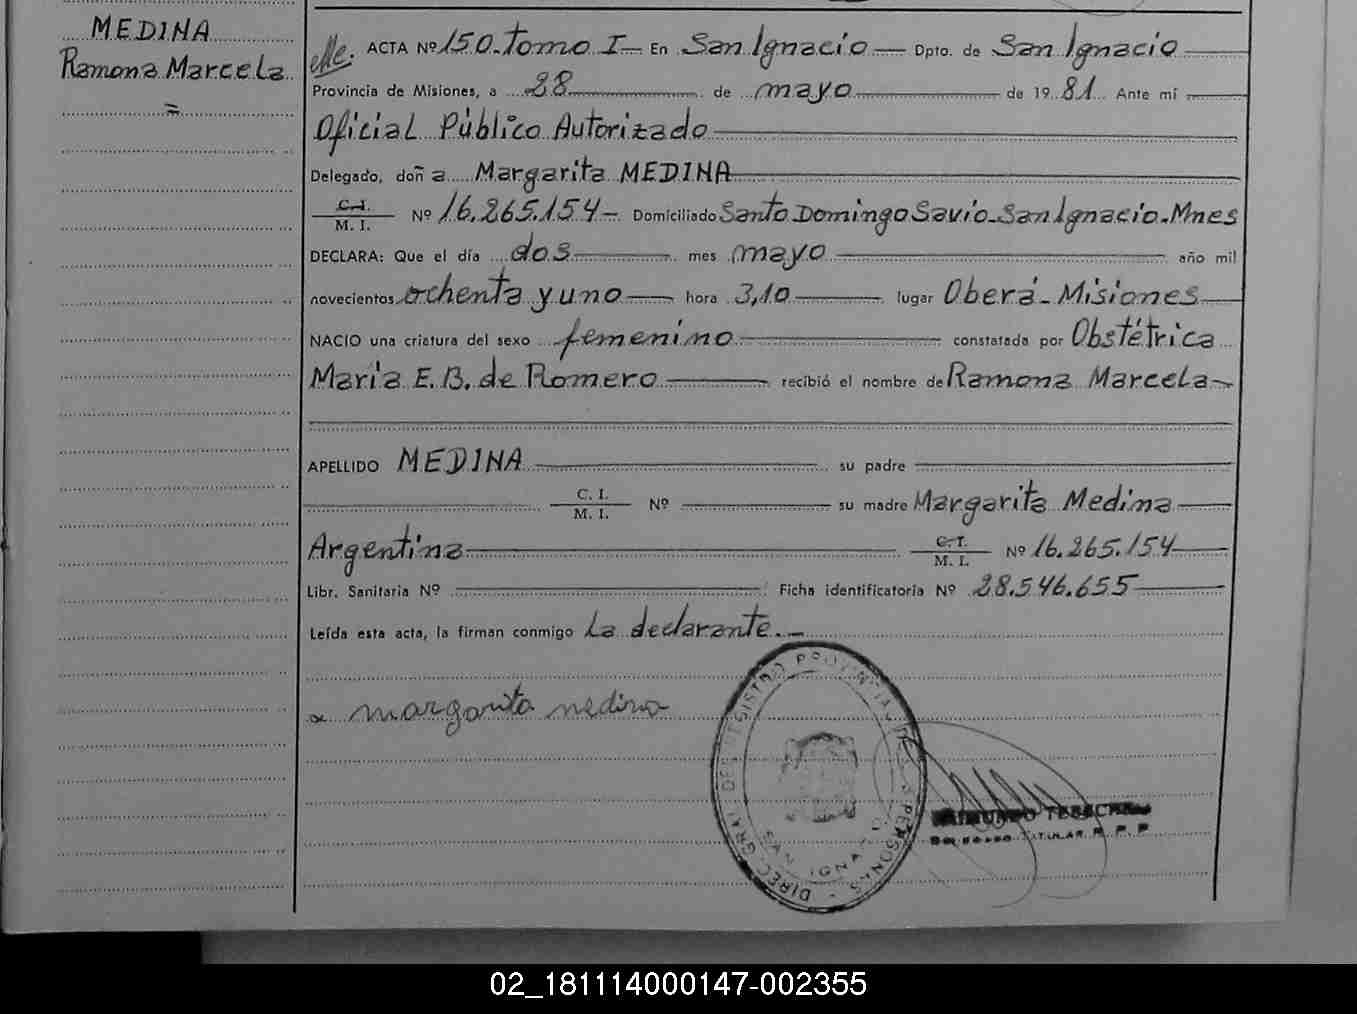 MEDINA
Ramona Marcela
=
ACTA Nº 150. Tomo I - En San Ignacio - Dpto. de San Ignacio
Provincia de Misiones, a 28 de mayo de 1981 Ante mí
Oficial Público Autorizado
Delegado, doña Margarita MEDINA
C. I.
M. I. Nº 16.265.154 - Domiciliado Santo Domingo Savio - San Ignacio - Mnes
DECLARA: Que el día dos mes mayo año mil
novecientos ochenta y uno hora 3,10 lugar Oberá - Misiones
NACIO una criatura del sexo femenino constatada por Obstétrica
María E. B. de Romero recibió el nombre de Ramona Marcela
APELLIDO MEDINA su padre
C. I.
M. I. Nº su madre Margarita Medina
Argentina C. I.
M. I. Nº 16.265.154
Libr. Sanitaria Nº Ficha identificatoria Nº 28.546.655
Leída esta acta, la firman conmigo La declarante. -
margarita medina
DIREC. GRAL. DEL REGISTRO PROVINCIAL DE PERSONAS
SAN IGNACIO
TITULAR R. P. P.
02_181114000147-002355